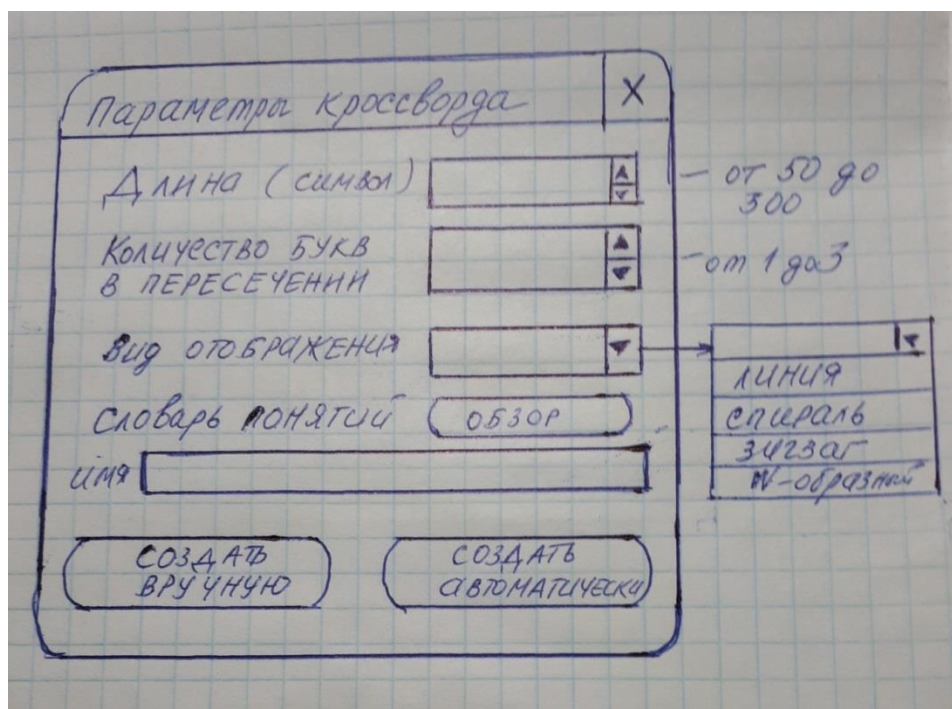 Параметры кроссворда X
Длина (символ)
- от 50 до
300
Количество БУКВ
В ПЕРЕСЕЧЕНИИ
- от 1 до 3
Вид ОТОБРАЖЕНИЯ
ЛИНИЯ
спираль
зигзаг
W-образный
Словарь понятий
ОБЗОР
имя
СОЗДАТЬ
ВРУЧНУЮ
СОЗДАТЬ
АВТОМАТИЧЕСКИ